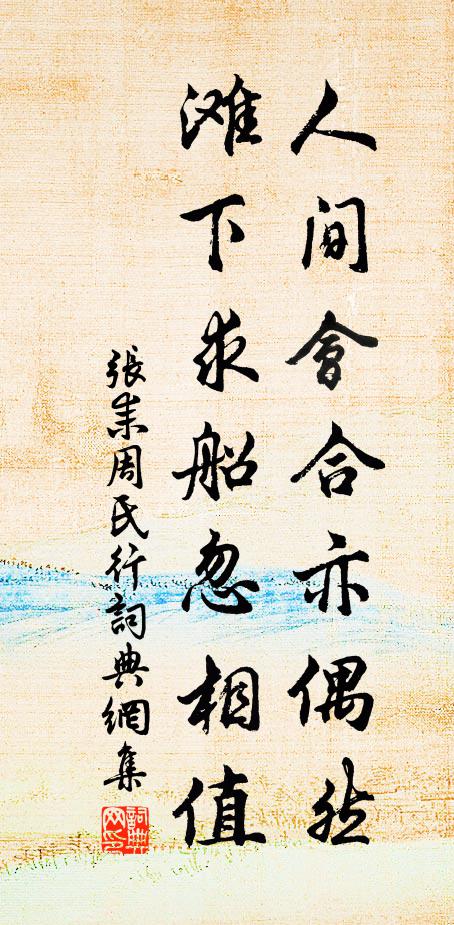 人間會合亦偶然
滩下求船忽相值
張耒周氏行詞典網集
詞典网印